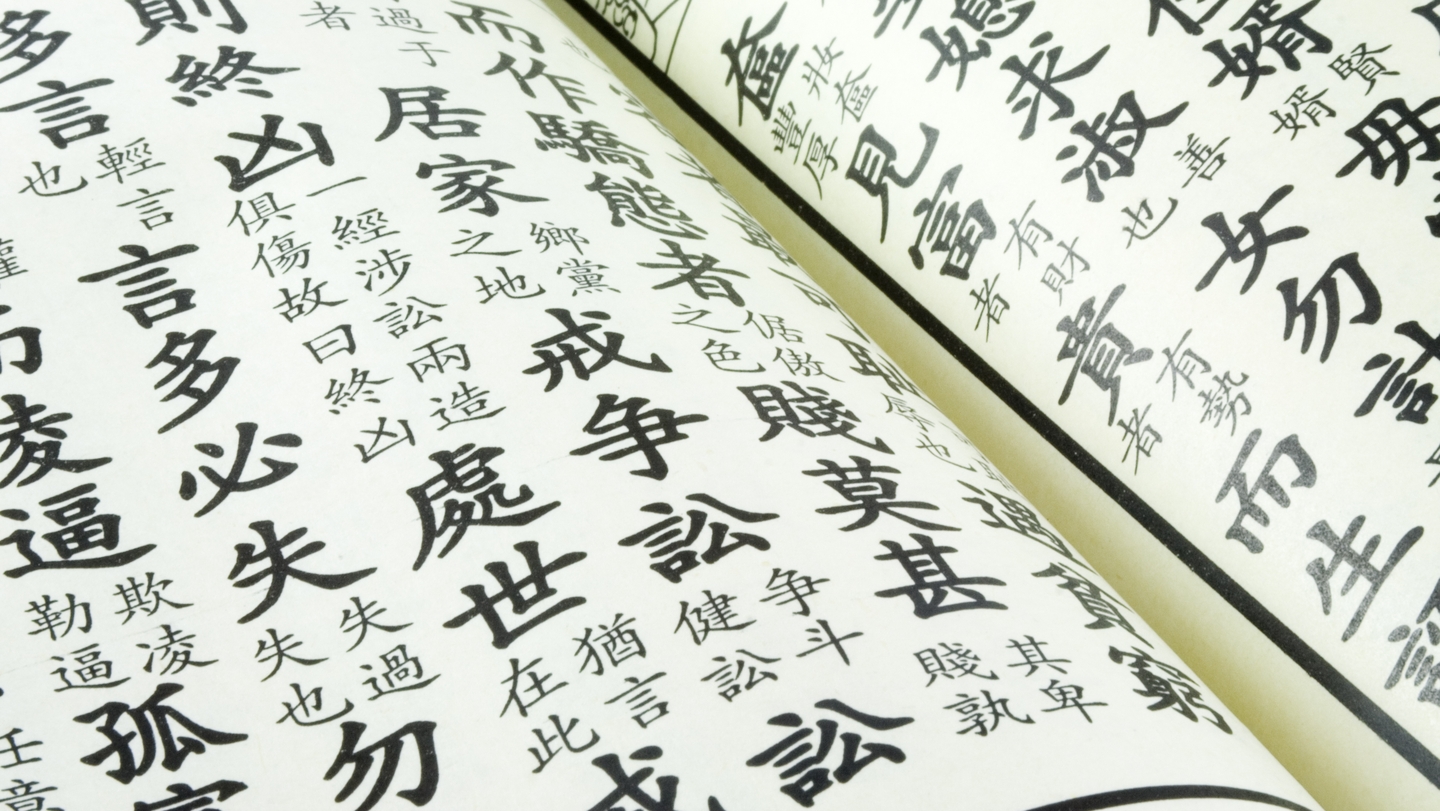 婿
賢婿
毋
媳求淑
善也
女勿計
奩
妝奩
豐厚
見富
有財
者
貴
有勢
者
而生
窮
而作驕態者
倨傲
之色
賤莫甚
其卑
賤孰
過于
者
居家
鄉黨
之地
戒争訟
争斗
健訟
訟
則終凶
一經涉訟兩造
俱傷故曰終凶
處世
猶言
在此
戒
多言
輕言
也
言多必失
失過
失也
勿
凌逼
欺凌
勒逼
孤
任意